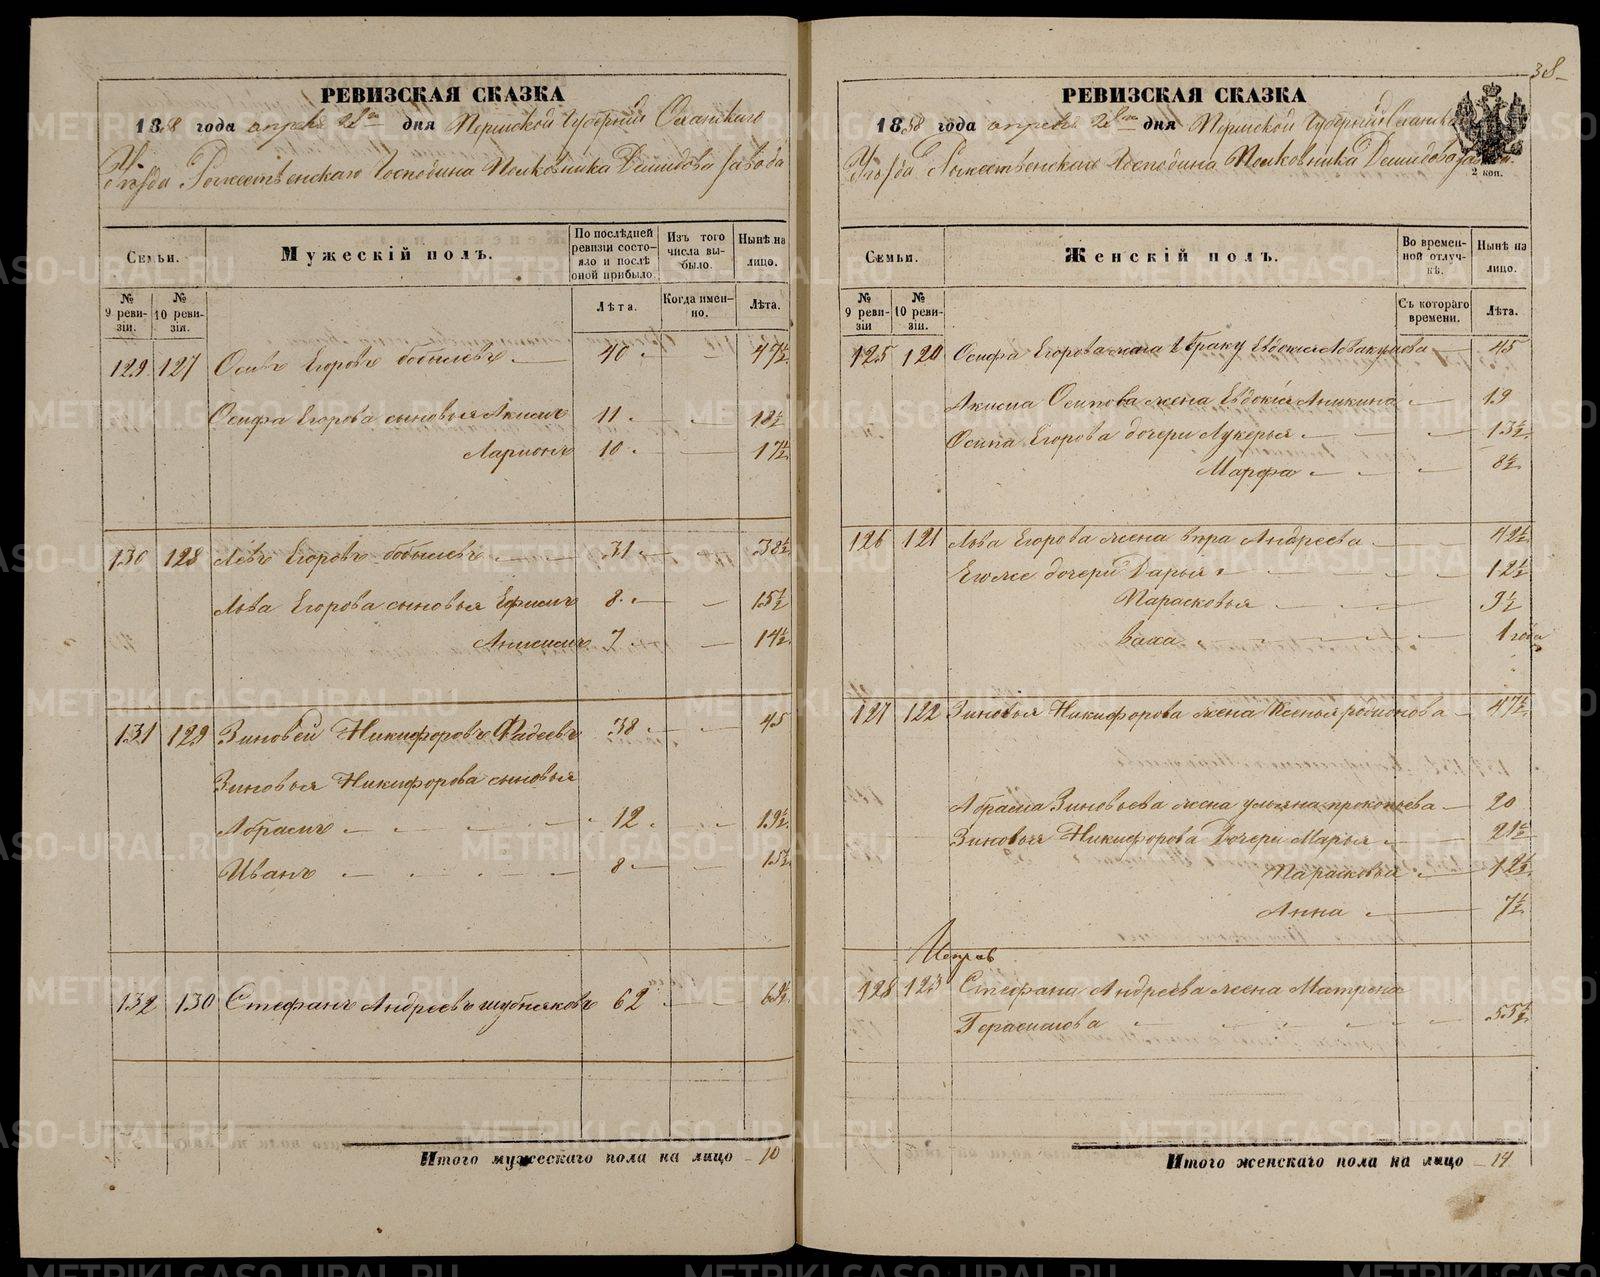 РЕВИЗСКАЯ СКАЗКА
1858 года апреля дня Пермской Губерніи Оханскаго
Уѣзда Рожественскаго Господина Полковника Демидова завода
Семьи.
Мужескій полъ.
По послѣдней ревизіи состояло и послѣ оной прибыло.
Изъ того числа выбыло.
Нынѣ на лицо.
№ 9 ревизіи.
№ 10 ревизія.
Лѣта.
Когда именно.
Лѣта.
129 127 Осипъ Егоровъ бобылевъ 40 47½
Осифа Егорова сыновья Акимъ 11 18½
Ларионъ 10 17½
130 128 Левъ Егоровъ бобылевъ 31 38½
Льва Егорова сыновья Ефимъ 8 15½
Анисимъ 7 14½
131 129 Зиновей Никифоровъ Фадеевъ 38 45
Зиновья Никифорова сыновья
Абрамъ 12 19½
Иванъ 8 15½
132 130 Стефанъ Андреевъ шубняковъ 62 69½
Итого мужескаго пола на лицо 10
38
РЕВИЗСКАЯ СКАЗКА
1858 года апреля дня Пермской Губерніи Оханскаго
Уѣзда Рожественскаго Господина Полковника Демидова завода
2 коп.
Семьи.
Женскій полъ.
Во временной отлучкѣ.
Нынѣ на лицо.
№ 9 ревизіи
№ 10 ревизіи.
Съ котораго времени.
Лѣта.
125 120 Осифа Егорова жена браку Евдокия Авакумова 45
Акима Осипова жена Евдокия Аникина 19
Осипа Егорова дочери Лукерья 13½
Марфа 8½
126 121 Льва Егорова жена вѣра Андреева 42½
Егоже дочери Дарья 12½
Парасковья 9½
1 года
127 122 Зиновья Никифорова жена Ксенья родионова 47½
Абрама Зиновьева жена ульяна прокопьева 20
Зиновья Никифорова Дочери Марья 21½
Парасковья 12½
Анна 7½
128 123 Стефана Андреева жена Матрена
Герасимова 55½
Итого женскаго пола на лицо 14
METRIKI.GASO-URAL.RU